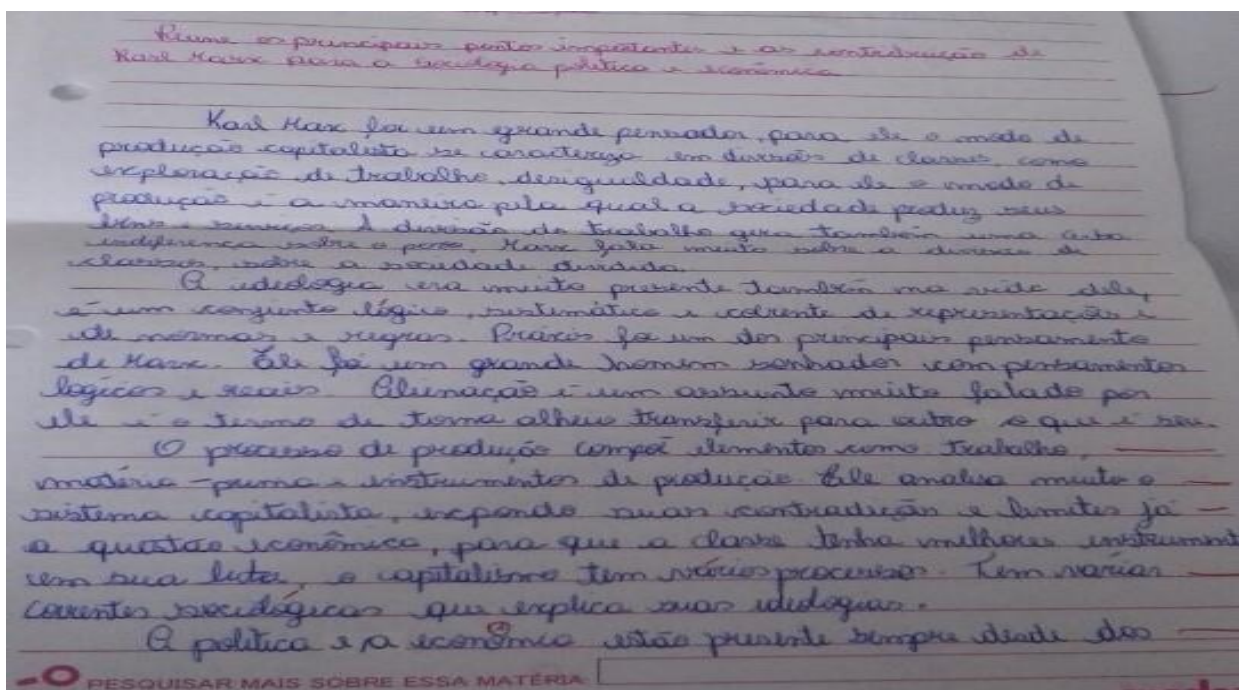 Reune os principais pontos importantes e as contribuição de
Karl Marx para a sociologia política e econômica
Karl Marx foi um grande pensador, para ele o modo de
produção capitalista se caracteriza em divisão de classes, como
exploração de trabalho, desigualdade, para ele o modo de
produção é a maneira pela qual a sociedade produz seus
bens e serviços A divisão do trabalho gera também uma
indiferença sobre o Marx fala muito sobre a divisão de
classes, sobre a sociedade dividida.
A ideologia era muito presente também na vida dele,
é um conjunto lógico, sistemático e coerente de representações e
de normas e regras. Práxis foi um dos principais pensamento
de Marx. Ele foi um grande homem sonhador com pensamentos
logicos e reais. Alienação é um assunto muito falado por
ele é o termo de torna alheio transferir para outro o que é seu.
O processo de produção compõe elementos como trabalho,
matéria-prima e instrumentos de produção. Ele analisa muito o
sistema capitalista, expondo suas contradição e limites já
a questão econômica, para que a classe tenha melhores instrument
em sua luta, o capitalismo tem vários processos. Tem varias
correntes sociológicas que explica suas ideologias.
A política e a econômia estão presente sempre desde dos
PESQUISAR MAIS SOBRE ESSA MATÉRIA